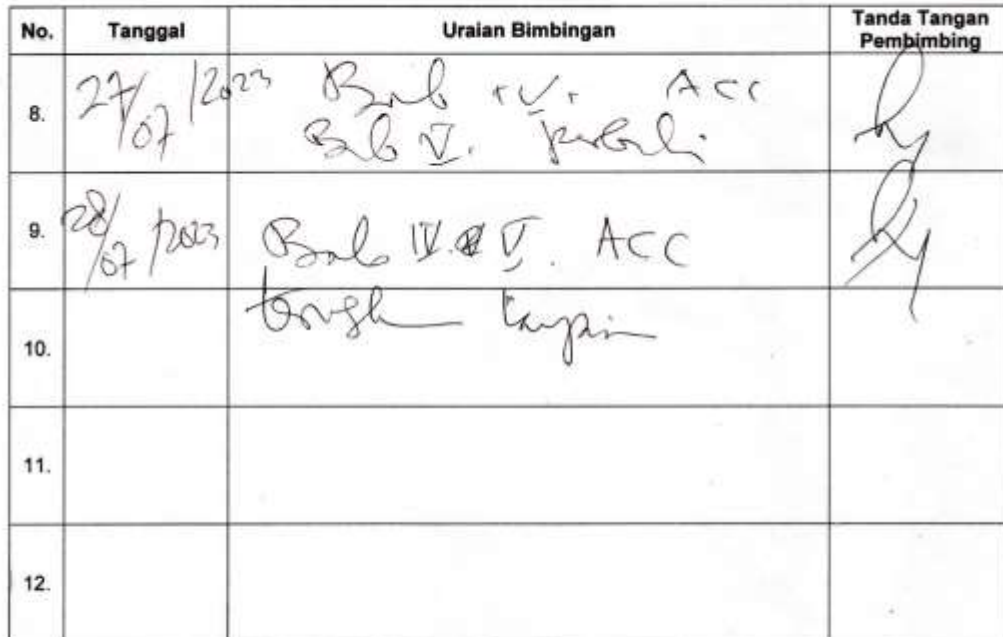 No. Tanggal Uraian Bimbingan Tanda Tangan Pembimbing
8. 27/07/2023 Bab IV. ACC
Bab V. perbaiki
9. 28/07/2023 Bab IV & V. ACC
10.
11.
12.